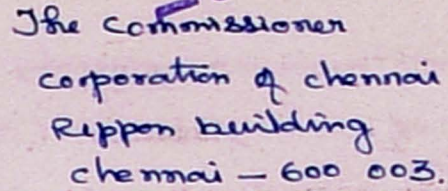 The commissioner
corporation of chennai
Rippon building
chennai - 600 003.